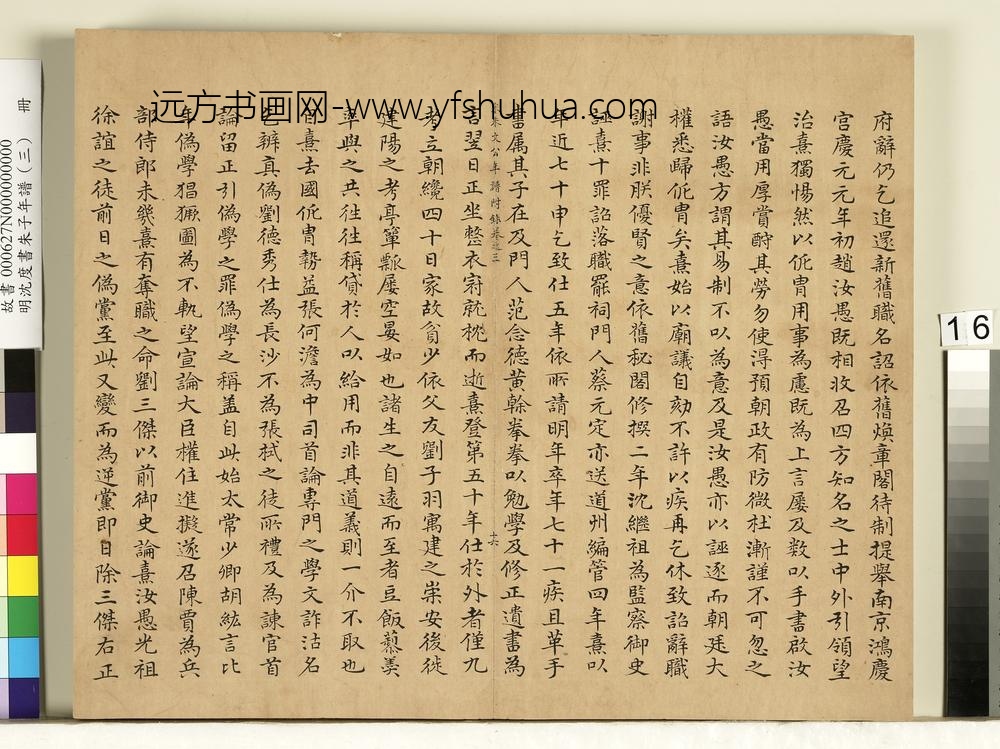 府辭仍乞追還新舊職名詔依舊煥章閣待制提舉南京鴻慶
宮慶元元年初趙汝愚既相收召四方知名之士中外引領望
治熹獨惕然以侂胄用事為慮既為上言屢及數以手書啟汝
愚當用厚賞酧其勞勿使淂預朝政有防微杜漸謹不可忽之
語汝愚方謂其易制不以為意及是汝愚亦以誣逐而朝廷大
權悉歸侂胄矣熹始以廟議自劾不許以疾再乞休致詔辭職
謝事非朕優賢之意依舊秘閣修撰二年沈繼祖為監察御史
誣熹十罪詔落職罷祠門人蔡元定亦送道州編管四年熹以
年近七十申乞致仕五年依所請明年卒年七十一疾且革手
書属其子在及門人范念德黃榦拳拳以勉學及修正遺書為
朱文公年譜附錄卷之三
十六
言翌日正坐整衣冠就枕而逝熹登第五十年仕於外者僅九
考立朝纔四十日家故貧少依父友劉子羽寓建之崇安後徙
建陽之考亭簞瓢屢空晏如也諸生之自遠而至者豆飯藜羹
率與之共往往稱貸於人以給用而非其道義則一介不取也
自熹去國侂胄勢益張何澹為中司首論專門之學文詐沽名
乞辨真偽劉德秀仕為長沙不為張栻之徒所禮及為諫官首
論留正引偽學之罪偽學之稱盖自此始太常少卿胡紘言比
年偽學猖獗圖為不軌望宣論大臣權住進擬遂召陳賈為兵
部侍郎未幾熹有奪職之命劉三傑以前御史論熹汝愚光祖
徐誼之徒前日之偽黨至此又變而為逆黨即日除三傑右正
远方书画网-www.yfshuhua.com
冊
故書000627N000000000
明沈度書朱子年譜(三)
16